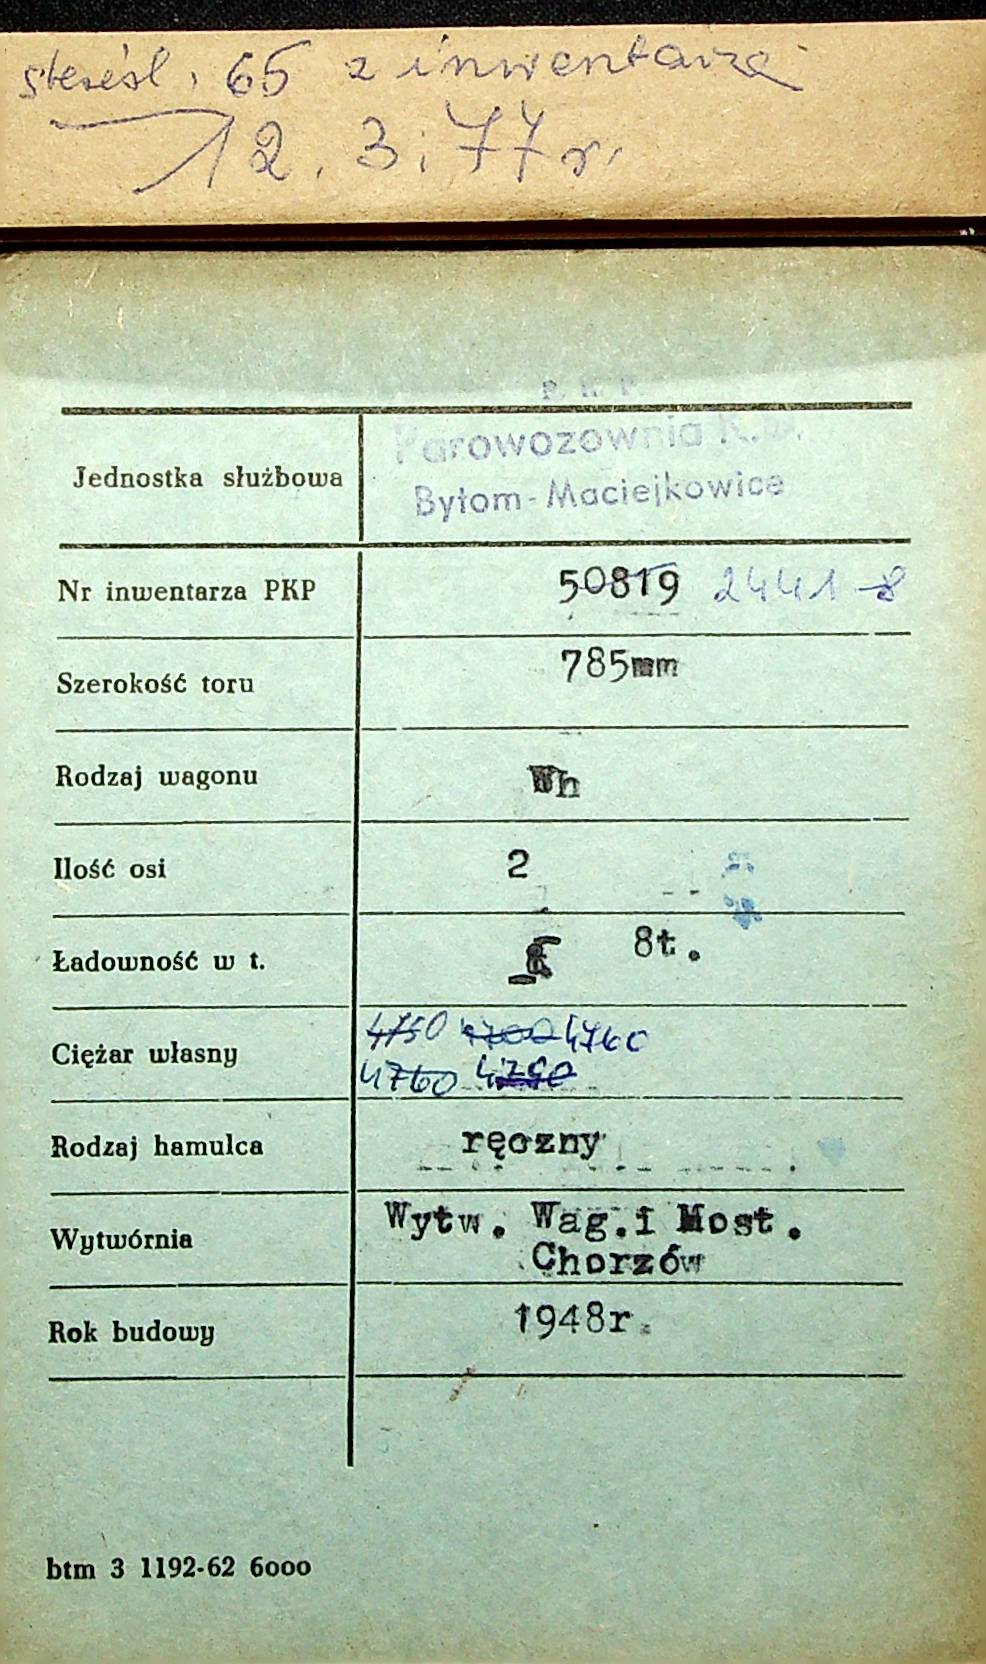 skreśl. 65 z inwentarza
12.3.77 r.
P. K. P.
Parowozownia K.D.
Jednostka służbowa
Bytom-Maciejkowice
Nr inwentarza PKP 50819 2441-8
Szerokość toru 785mm
Rodzaj wagonu Wh
Ilość osi 2
Ładowność w t. 8t.
Ciężar własny 4750 4700 4760
4760 4790
Rodzaj hamulca ręczny
Wytwórnia Wytw. Wag.i Most.
Chorzów
Rok budowy 1948r.
btm 3 1192-62 6000